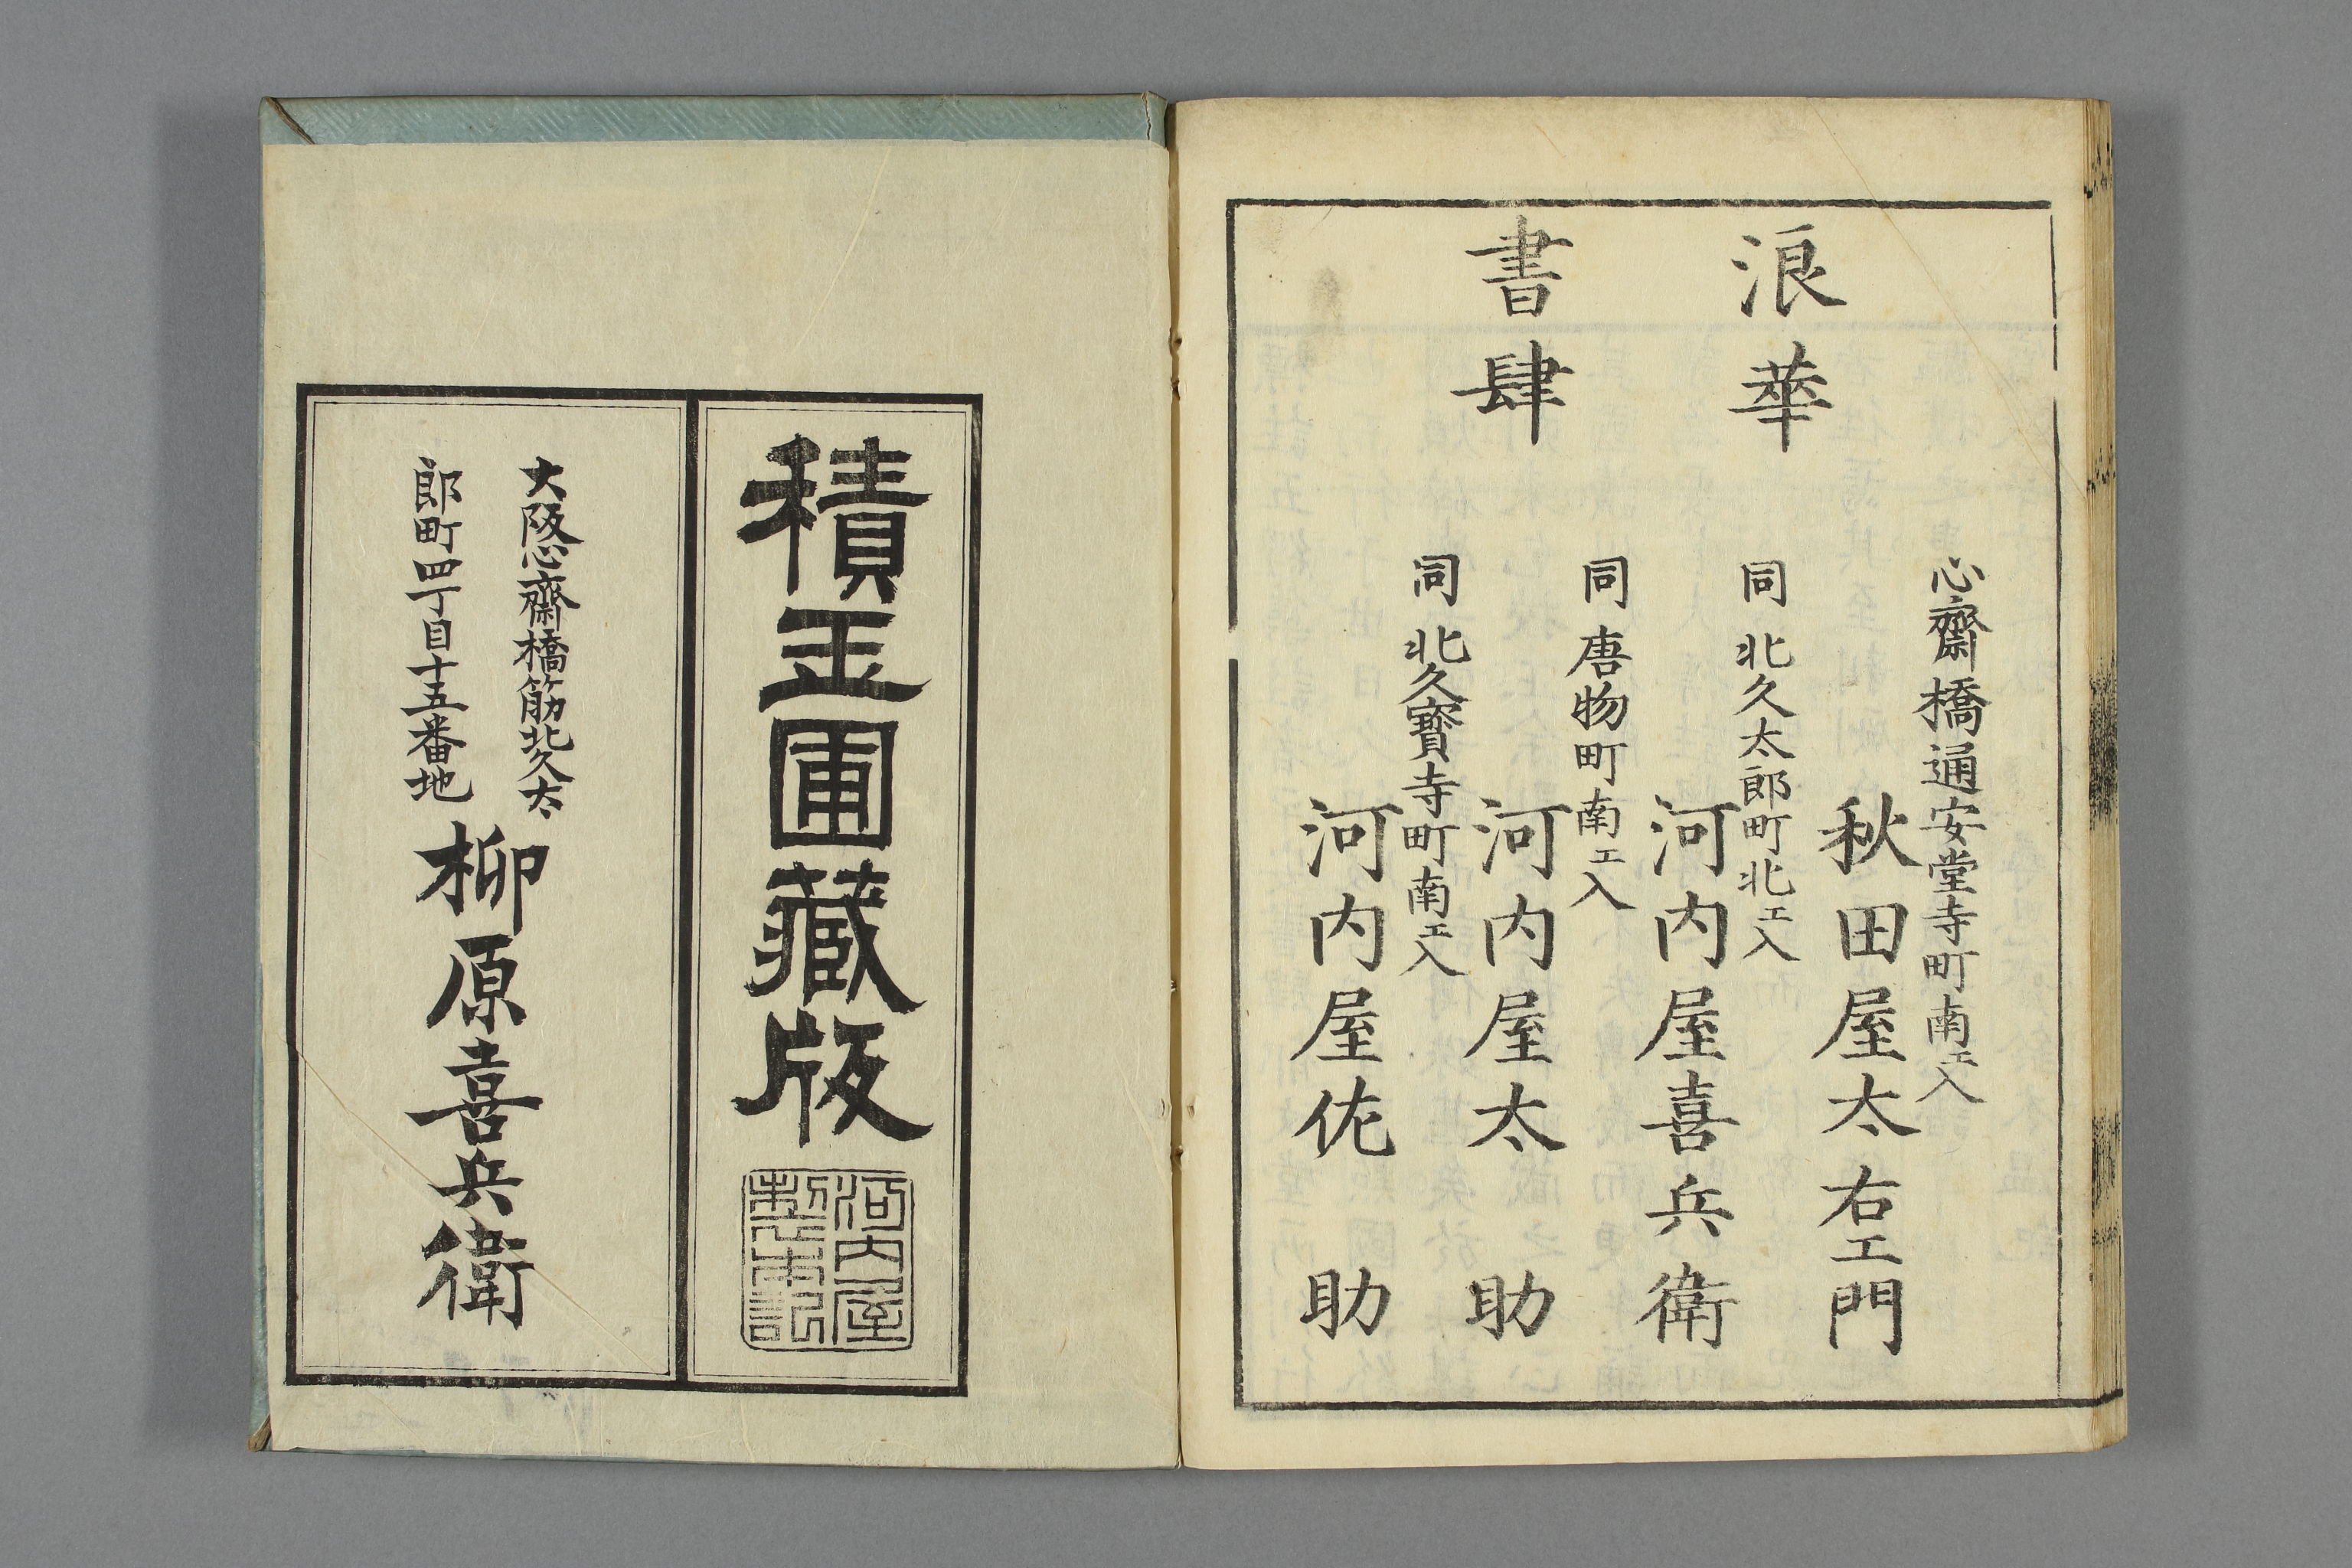 浪華
書肆
心齋橋通安堂寺町南エ入
秋田屋太右エ門
同 北久太郎町北エ入
河内屋喜兵衛
同 唐物町南エ入
河内屋太助
同 北久寳寺町南エ入
河内屋佐助
積玉圃藏版
河内屋
製本記
大阪心齋橋筋北久太
郎町四丁目十五番地
柳原喜兵衛